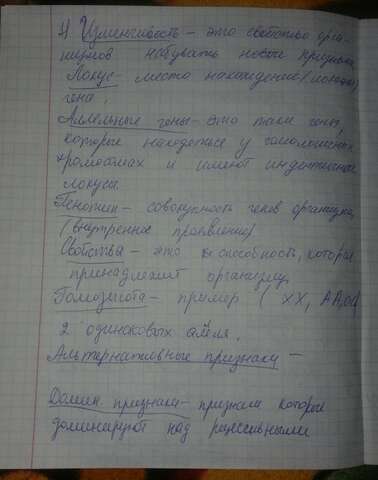 1) Изменчивость – это свойство орга-
низмов набувать новые признаки.
Локус – место нахождение (локация)
гена.
Аллельные гены – это такие гены,
которые находяться у гомологичных
хромосомах и имеют индентичные
локусы.
Генотип – совокупность генов организма,
(внутреннее проявление)
Свойства – это способность, которая
принадлежит организму.
Гомозигота – пример ( XX, AA,
2 одинаковых алеля.
Альтернативные признаки –
Домин признаки – признаки которые
доминируют над рецессивными